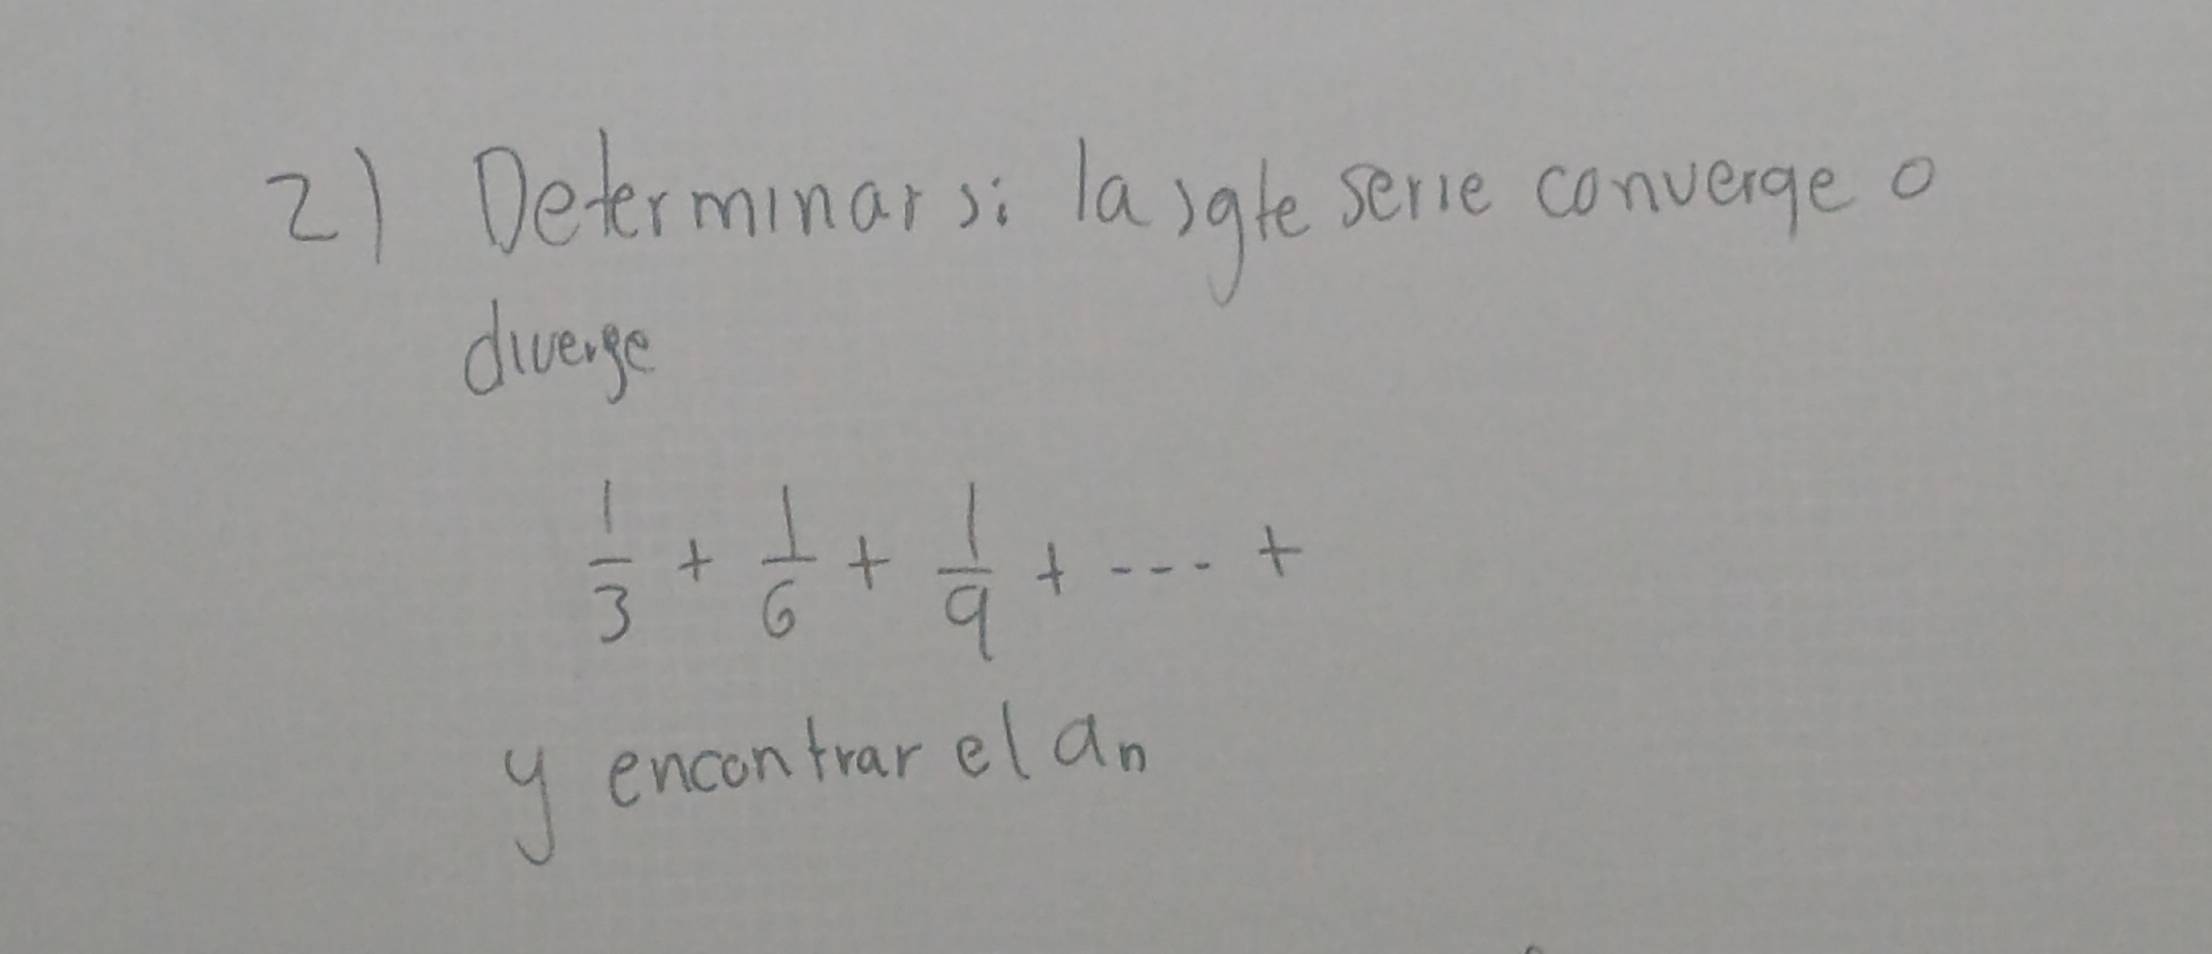 2) Determinar si la sgte serie converge o
diverge
1/3 + 1/6 + 1/9 + ---- +
y encontrar el an